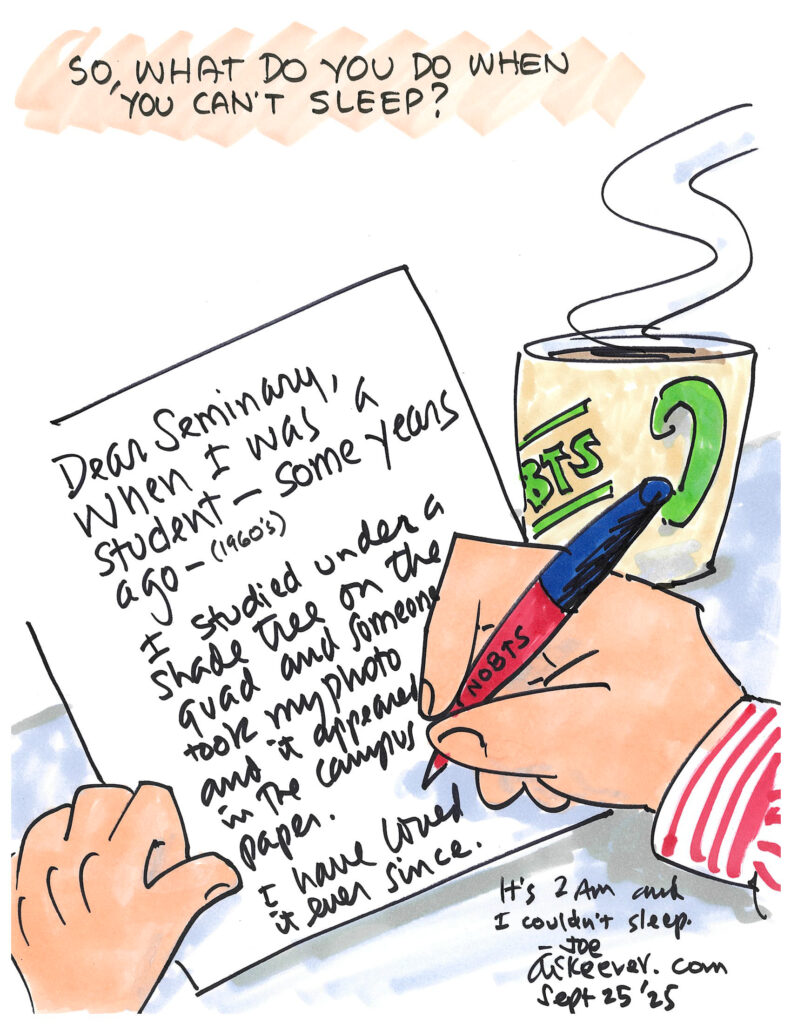 SO, WHAT DO YOU DO WHEN
YOU CAN'T SLEEP?
Dear Seminary,
When I was a
student – some years
ago – (1960's)
I studied under a
shade tree on the
quad and someone
took my photo
and it appeared
in the campus
paper.
I have loved
it ever since.
BTS
NOBTS
It's 2 AM and
I couldn't sleep.
– Joe
McKeever.com
Sept 25 '25